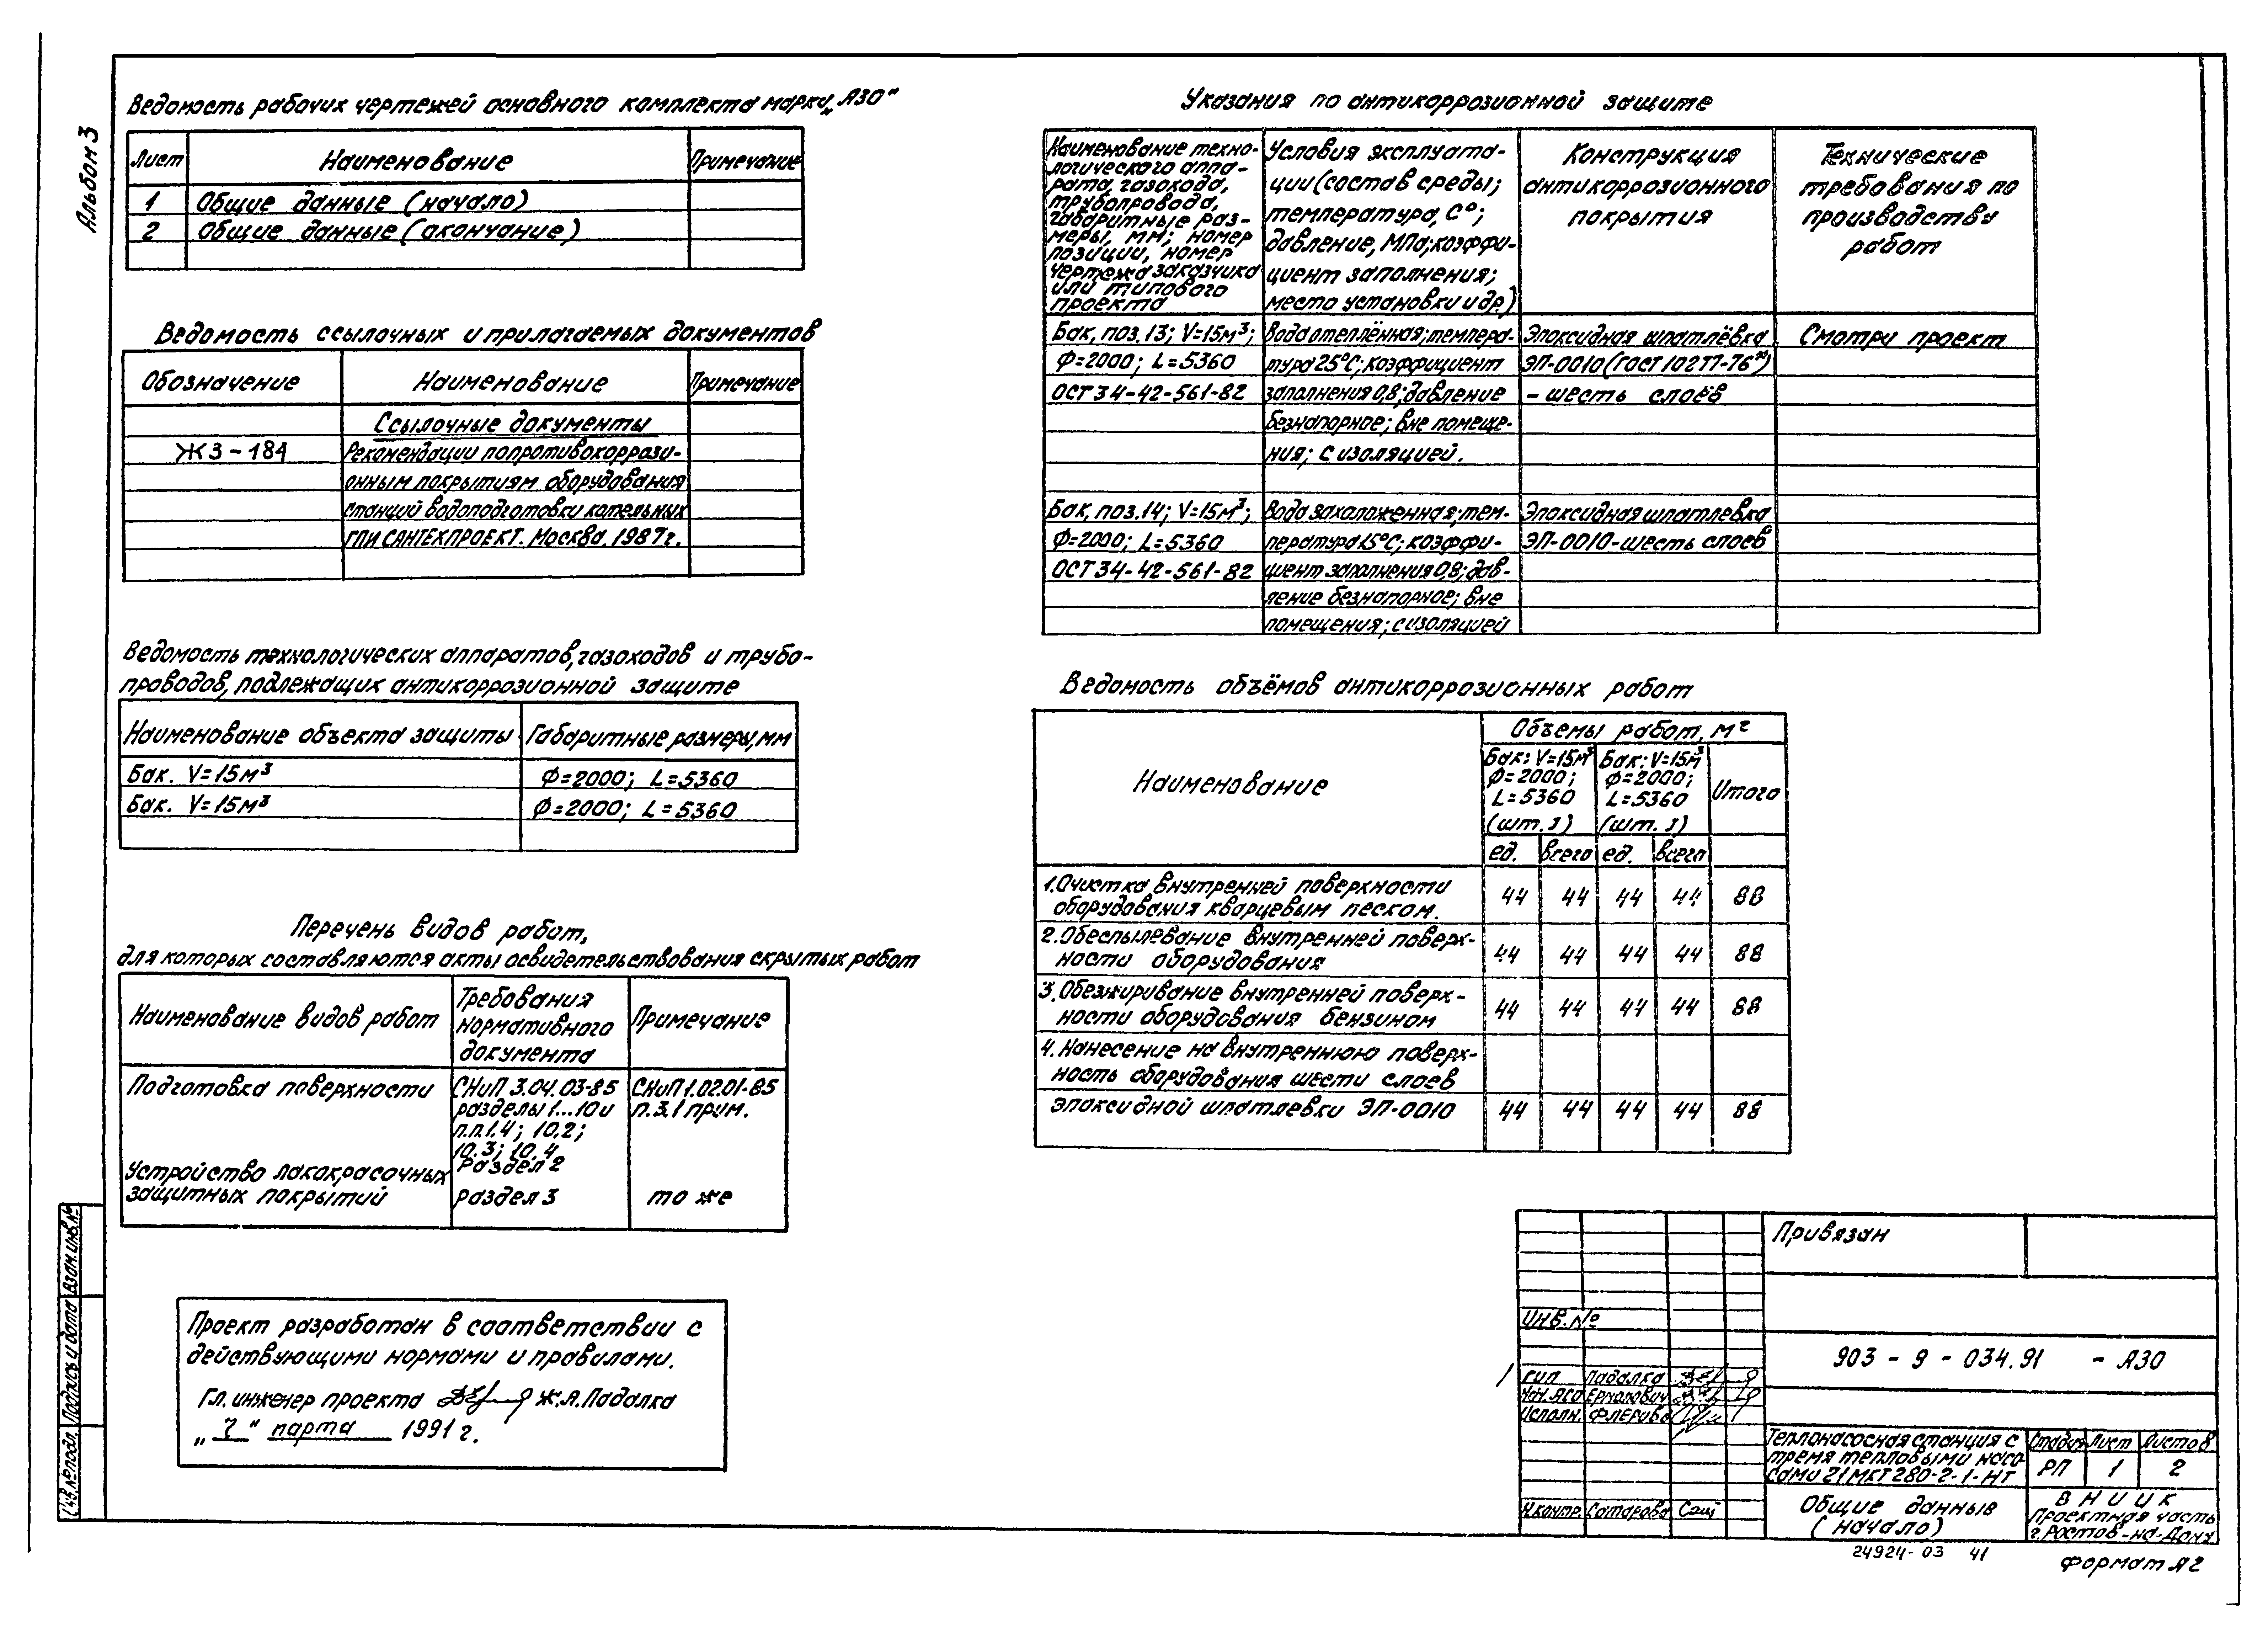 Альбом 3
Ведомость рабочих чертежей основного комплекта марки „АЗО"
Лист Наименование Примечание
1 Общие данные (начало)
2 Общие данные (окончание)
Ведомость ссылочных и прилагаемых документов
Обозначение Наименование Примечание
Ссылочные документы
ЖЗ-184 Рекомендации по противокоррози-
онным покрытиям оборудования
станций водоподготовки котельных
ГПИ САНТЕХПРОЕКТ. Москва. 1987г.
Ведомость технологических аппаратов, газоходов и трубо-
проводов, подлежащих антикоррозионной защите
Наименование объекта защиты Габаритные размеры, мм
Бак. V=15м³ Ф=2000; L=5360
Бак. V=15м³ Ф=2000; L=5360
Перечень видов работ,
для которых составляются акты освидетельствования скрытых работ
Наименование видов работ
Требования
нормативного
документа
Примечание
Подготовка поверхности
СНиП 3.04.03-85
разделы 1...10 и
п.п.1.4; 10.2;
10.3; 10.4
Раздел 2
СНиП 1.02.01-85
п.3.1 прим.
Устройство лакокрасочных
защитных покрытий
раздел 3
то же
Проект разработан в соответствии с
действующими нормами и правилами.
Гл. инженер проекта Ж.А.Падалка
„7" марта 1991г.
Указания по антикоррозионной защите
Наименование техно-
логического аппа-
рата, газохода,
трубопровода,
габаритные раз-
меры, мм; номер
позиции, номер
чертежа заказчика
или типового
проекта
Условия эксплуата-
ции (состав среды;
температура, С°;
давление, МПа; коэффи-
циент заполнения;
место установки и др.)
Конструкция
антикоррозионного
покрытия
Технические
требования по
производству
работ
Бак, поз.13; V=15м³;
Ф=2000; L=5360
ОСТ 34-42-561-82
Вода отеплённая; темпера-
тура 25°С; коэффициент
заполнения 0,8; давление
безнапорное; вне помеще-
ния; с изоляцией.
Эпоксидная шпатлёвка
ЭП-0010 (ГОСТ 10277-76*)
- шесть слоёв
Смотри проект
Бак, поз.14; V=15м³;
Ф=2000; L=5360
ОСТ 34-42-561-82
Вода захоложенная; тем-
пература 15°С; коэффи-
циент заполнения 0,8; дав-
ление безнапорное; вне
помещения; с изоляцией
Эпоксидная шпатлевка
ЭП-0010-шесть слоев
Ведомость объёмов антикоррозионных работ
Наименование
Объемы работ, м²
Бак: V=15м³
Ф=2000;
L=5360
(шт. 1)
Бак: V=15м³
Ф=2000;
L=5360
(шт. 1)
Итого
ед. всего ед. всего
1. Очистка внутренней поверхности
оборудования кварцевым песком. 44 44 44 44 88
2. Обеспыливание внутренней поверх-
ности оборудования 44 44 44 44 88
3. Обезжиривание внутренней поверх-
ности оборудования бензином 44 44 44 44 88
4. Нанесение на внутреннюю поверх-
ность оборудования шести слоев
эпоксидной шпатлевки ЭП-0010 44 44 44 44 88
Привязан
Инв.№
903-9-034.91 - АЗО
ГИП Падалка
Нач. АСО Ермолович
Исполн. Флерова
Н.контр. Сатарова
Теплонасосная станция с
тремя тепловыми насо-
сами 21МКТ280-2-1-НТ
Стадия Лист Листов
РП 1 2
Общие данные
(начало)
ВНИИК
Проектная часть
г.Ростов-на-Дону
24924-03 41
Формат А2
Взам. инв.№
Подпись и дата
Инв.№ подл.